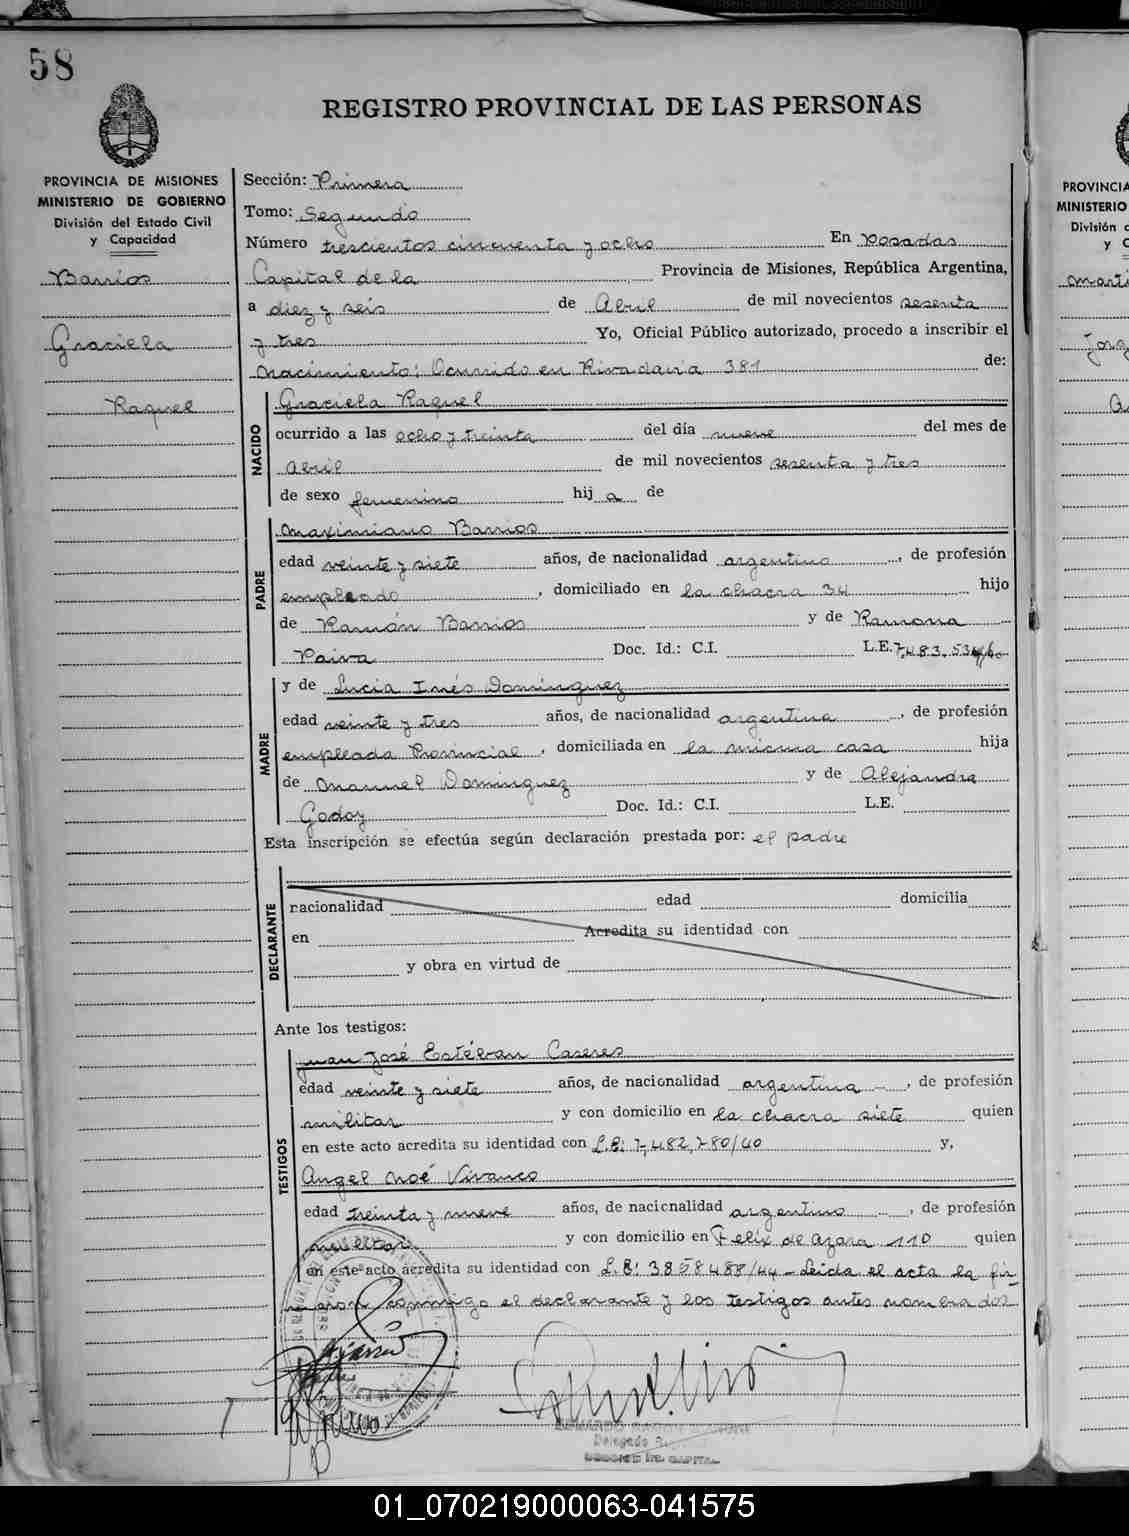 58
REGISTRO PROVINCIAL DE LAS PERSONAS
PROVINCIA DE MISIONES
MINISTERIO DE GOBIERNO
División del Estado Civil
y Capacidad
Barrios
Graciela
Raquel
Sección: Primera
Tomo: Segundo
Número trescientos cincuenta y ocho En Posadas
Capital de la Provincia de Misiones, República Argentina,
a diez y seis de Abril de mil novecientos sesenta
y tres Yo, Oficial Público autorizado, procedo a inscribir el
nacimiento: Ocurrido en Rivadavia 381 de:
NACIDO
Graciela Raquel
ocurrido a las ocho y treinta del día nueve del mes de
Abril de mil novecientos sesenta y tres
de sexo femenino hij a de
PADRE
Maximiano Barrios
edad veinte y siete años, de nacionalidad argentino, de profesión
empleado, domiciliado en la chacra 34 hijo
de Ramón Barrios y de Ramona
Paiva Doc. Id.: C.I. L.E. 7.483.534/40
MADRE
y de Lucia Inés Dominguez
edad veinte y tres años, de nacionalidad argentina, de profesión
empleada Provincial, domiciliada en la misma casa hija
de Manuel Dominguez y de Alejandra
Godoy Doc. Id.: C.I. L.E.
Esta inscripción se efectúa según declaración prestada por: el padre
DECLARANTE
nacionalidad edad domicilia
en Acredita su identidad con
y obra en virtud de
Ante los testigos:
TESTIGOS
Juan José Estéban Caseres
edad veinte y siete años, de nacionalidad argentina, de profesión
militar y con domicilio en la chacra siete quien
en este acto acredita su identidad con L.E: 7,482,780/40 y,
Angel Noé Vivanco
edad treinta y nueve años, de nacionalidad argentino, de profesión
militar y con domicilio en Felix de Azara 110 quien
en este acto acredita su identidad con L.E: 3858488/44 - Leida el acta la fir-
maron conmigo el declarante y los testigos antes nombrados
Delegado
SECCION 1ra. CAPITAL
PROVINCIA
MINISTERIO
División
y C
Marti
Jorg
01_070219000063-041575